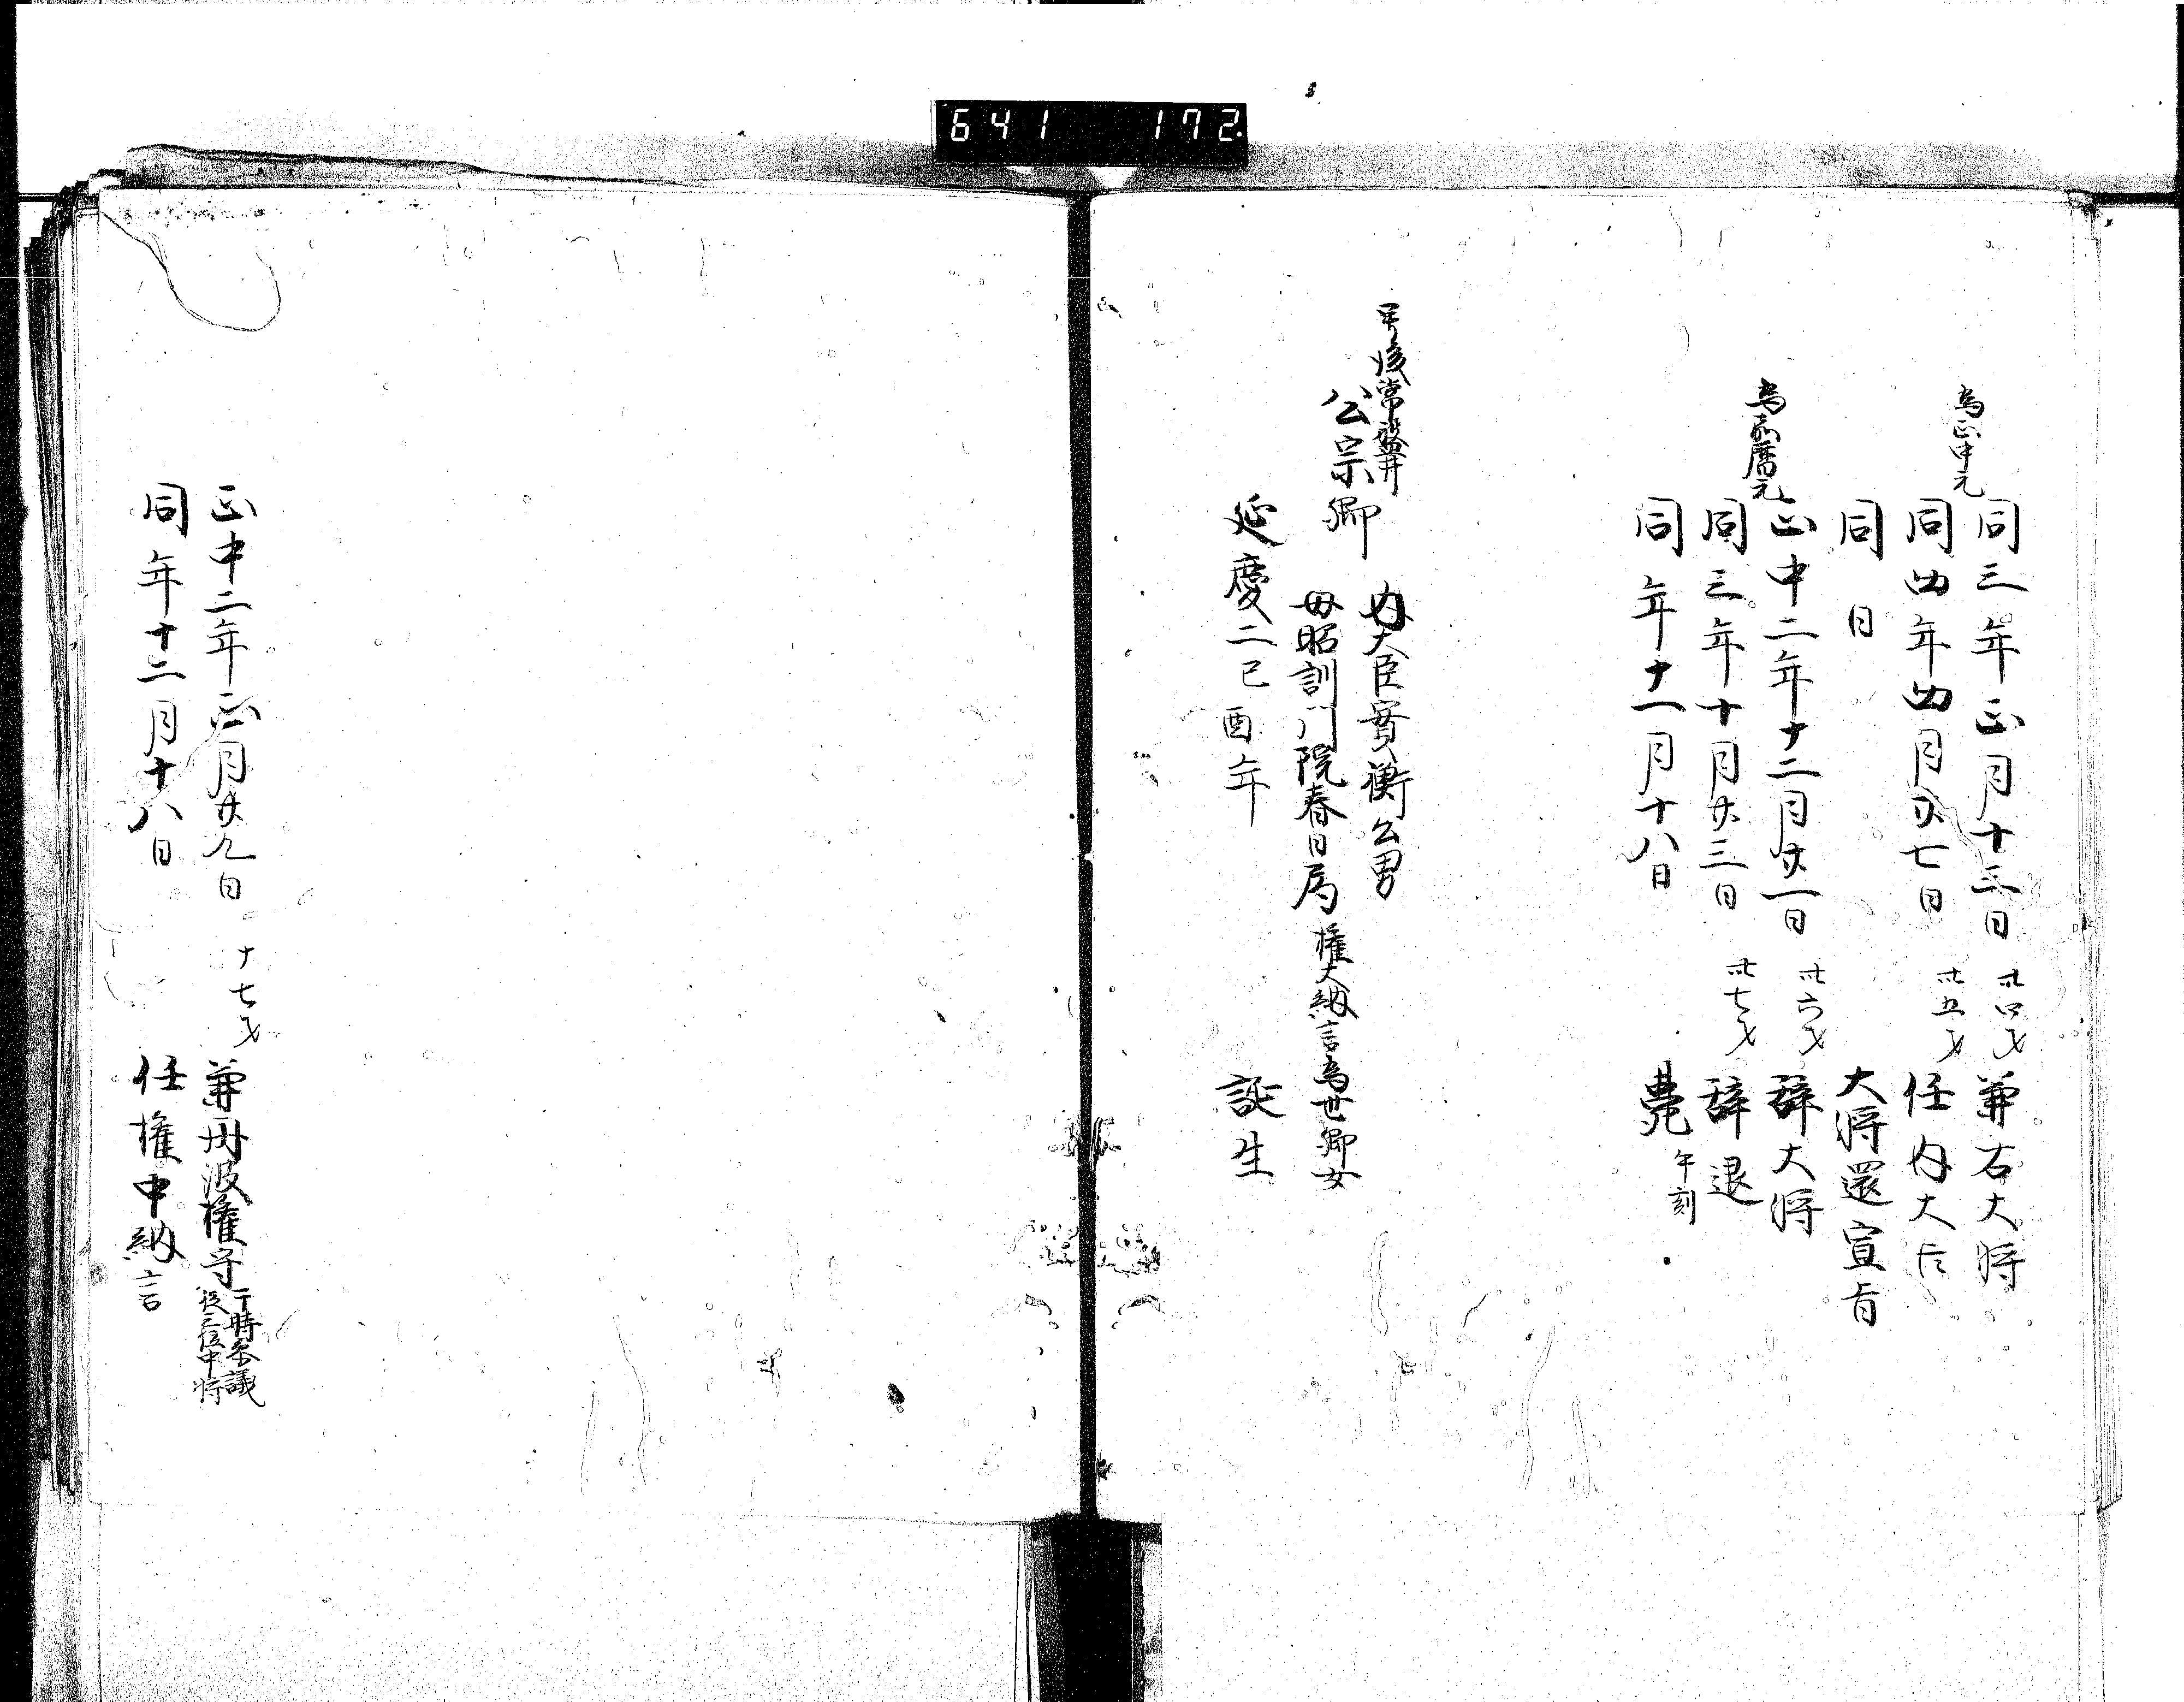 641 172
同三年正月十三日 卅四才 兼右大将
為正中元
同四年四月廿七日 卅五才 任内大臣
同日 大将還宣旨
正中二年十二月廿一日 卅六才 辞大将
為嘉暦元
同三年十月廿三日 卅七才 辞退
同年十一月十八日 薨 午刻
号後常盤井
公宗卿
内大臣實衡公男
母昭訓門院春日局 権大納言為世卿女
延慶二己酉年 誕生
正中二年正月廿九日 十七才 兼丹波権守 于時参議
従三位中将
同年十二月十八日 任権中納言